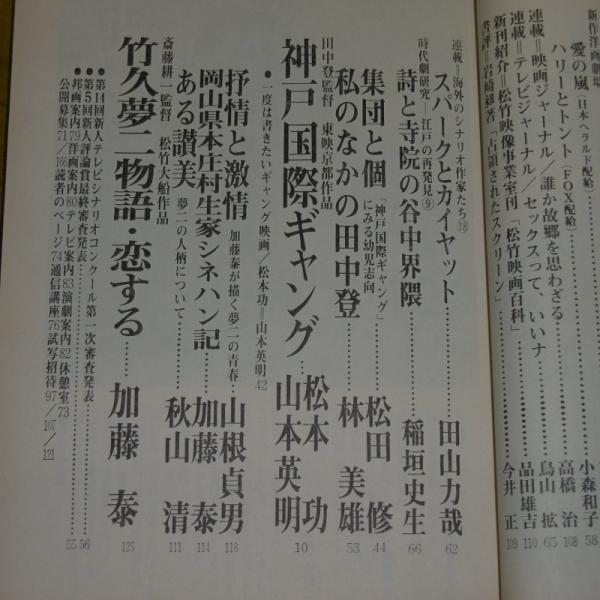 新作洋画劇場
愛の嵐（日本ヘラルド配給）……小森和子 58
ハリーとトント（FOX配給）……高橋 治 108
連載＝映画ジャーナル／誰か故郷を思わざる……鳥山 拡 65
連載＝テレビジャーナル／セックスって、いいナ……品田雄吉 110
新刊紹介＝松竹映像事業室刊「松竹映画百科」
書評＝岩崎昶著「占領されたスクリーン」……今井 正 109
連載＝海外のシナリオ作家たち⑱
スパークとカイヤット……田山力哉 62
時代劇研究＝江戸の再発見⑨
詩と寺院の谷中界隈……稲垣史生 66
集団と個「神戸国際ギャング」にみる幼児志向……松田 修 44
私のなかの田中登……林 美雄 53
田中登監督 東映京都作品
神戸国際ギャング……松本 功 山本英明 10
●一度は書きたいギャング映画／松本功＝山本英明 42
抒情と激情 加藤泰が描く夢二の青春……山根貞男 118
岡山県本庄村生家シネハン記……加藤 泰 114
ある讃美 夢二の人柄について……秋山 清 111
斎藤耕一監督 松竹大船作品
竹久夢二物語・恋する……加藤 泰 125
●第14回新人テレビシナリオコンクール第一次審査発表……56
●第5回新人評論賞最終審査発表……55
●邦画案内79洋画案内80テレビ案内83演劇案内82休憩室73
公開募集71／166読者のページ74通信講座76試写招待97／107／121